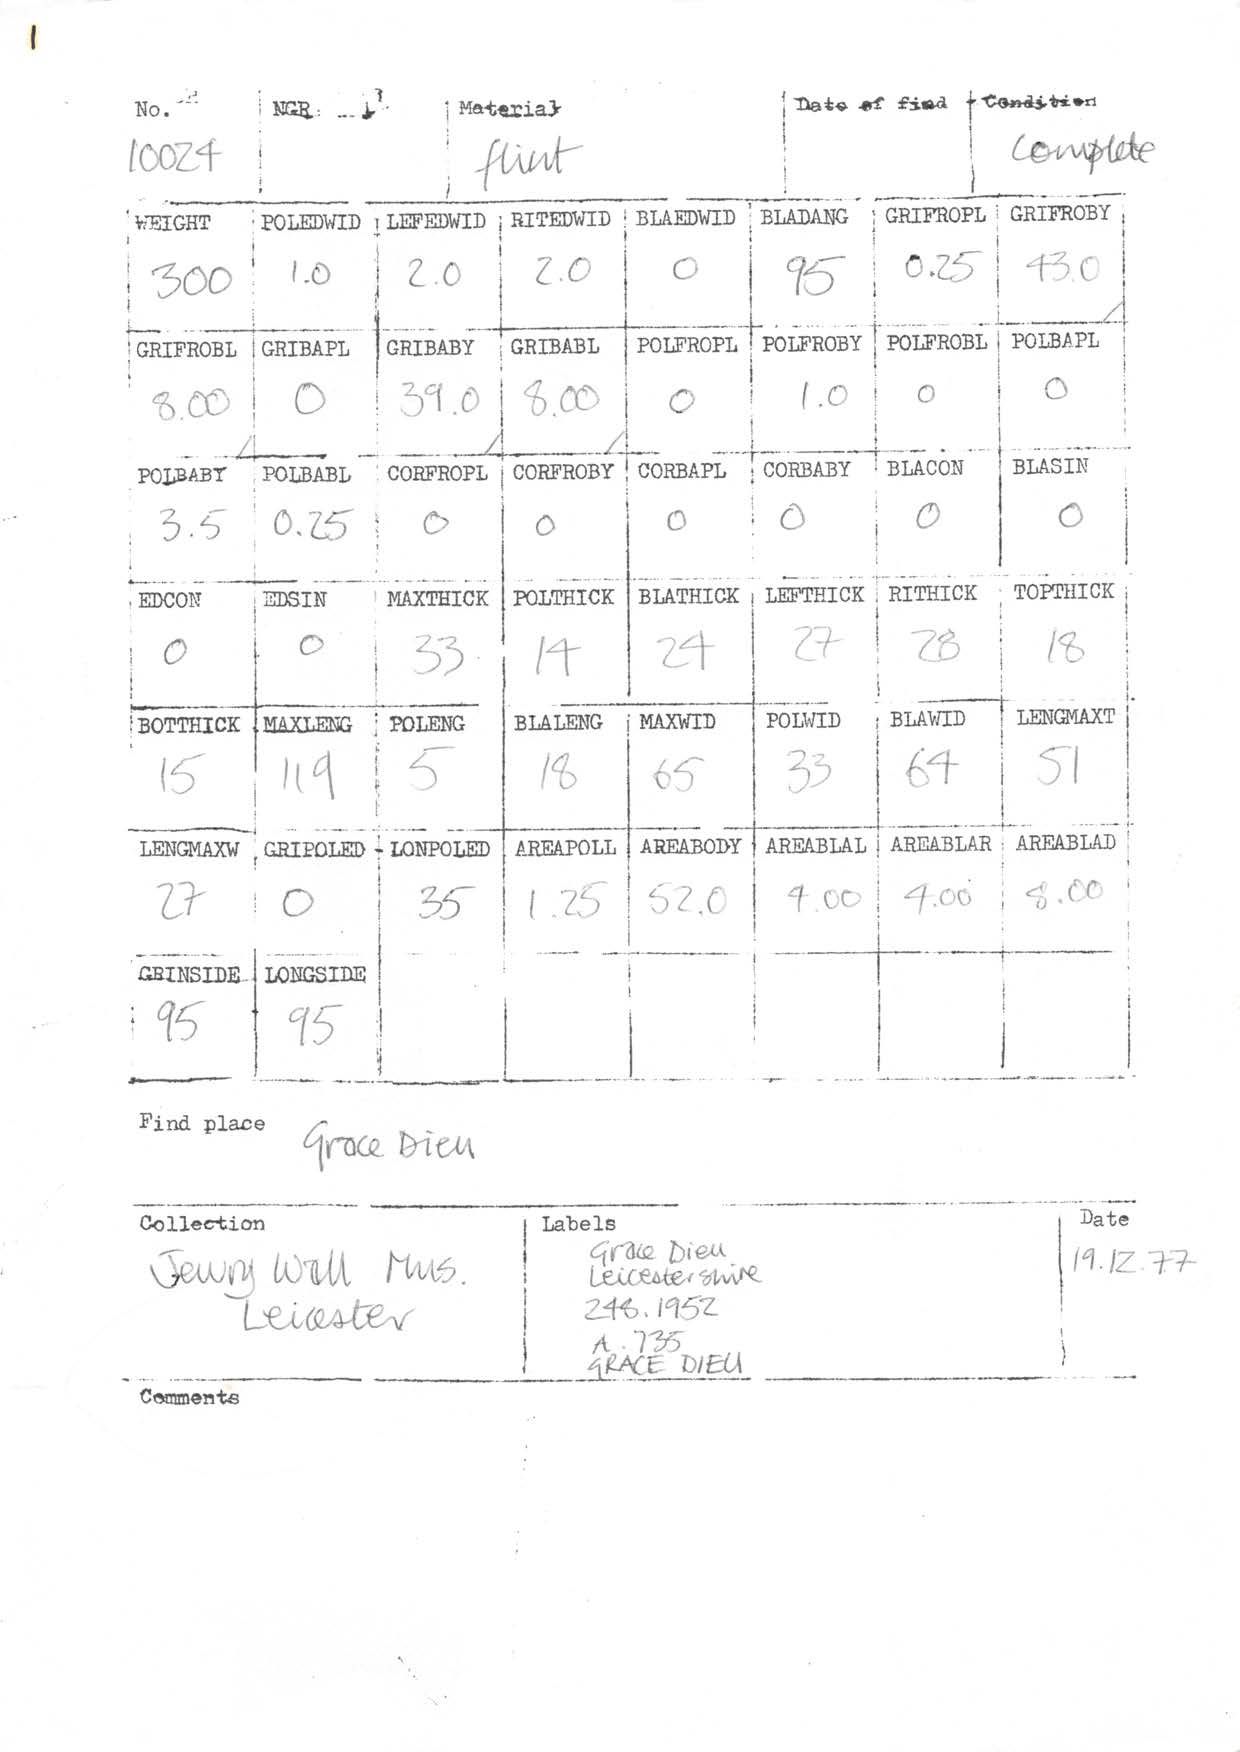 1
No. NGR: Material Date of find Condition
10024 flint Complete
WEIGHT POLEDWID LEFEDWID RITEDWID BLAEDWID BLADANG GRIFROPL GRIFROBY
300 1.0 2.0 2.0 0 95 0.25 43.0
GRIFROBL GRIBAPL GRIBABY GRIBABL POLFROPL POLFROBY POLFROBL POLBAPL
8.00 0 39.0 8.00 0 1.0 0 0
POLBABY POLBABL CORFROPL CORFROBY CORBAPL CORBABY BLACON BLASIN
3.5 0.25 0 0 0 0 0 0
EDCON EDSIN MAXTHICK POLTHICK BLATHICK LEFTHICK RITHICK TOPTHICK
0 0 33 14 24 27 28 18
BOTTHICK MAXLENG POLENG BLALENG MAXWID POLWID BLAWID LENGMAXT
15 119 5 18 65 33 64 51
LENGMAXW GRIPOLED LONPOLED AREAPOLL AREABODY AREABLAL AREABLAR AREABLAD
27 0 35 1.25 52.0 4.00 4.00 8.00
GRINSIDE LONGSIDE
95 95
Find place Grace Dieu
Collection Labels Date
Jewry Wall Mus. Grace Dieu 19.12.77
Leicester Leicestershire
248.1952
A.735
GRACE DIEU
Comments